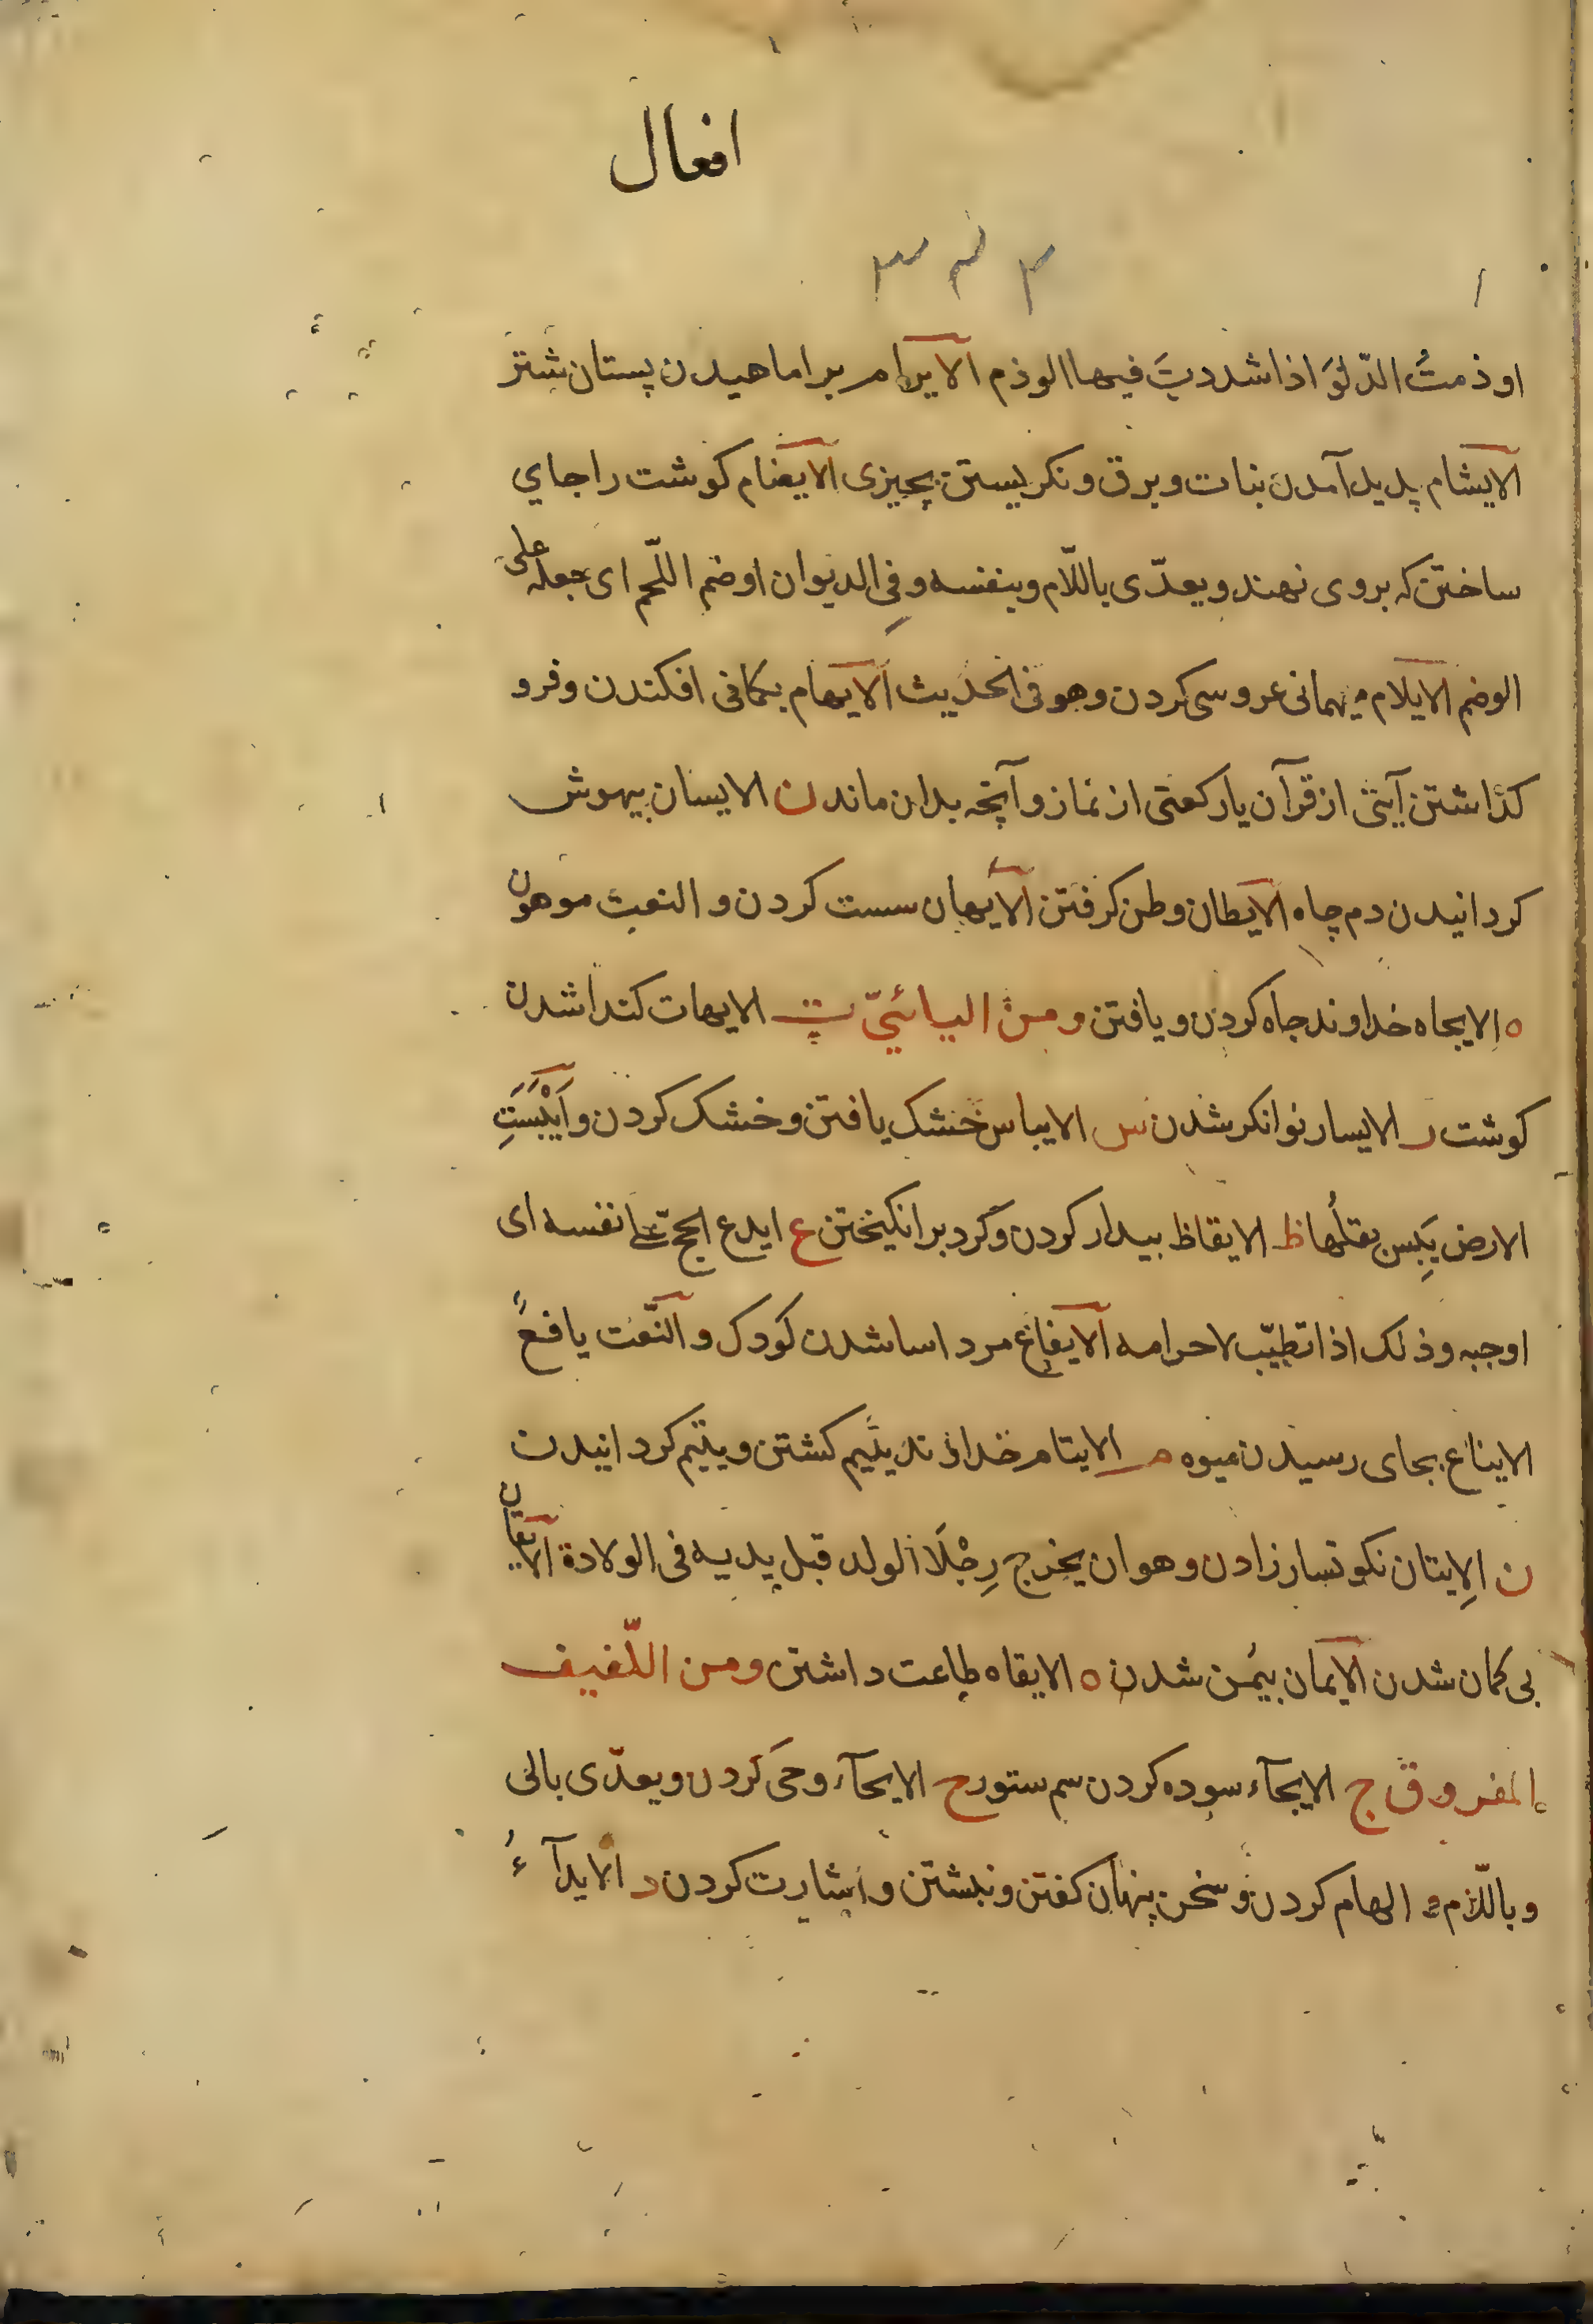 افعال
اوذمتُ الدّلوَ اذا شددتَ فیها الوذم الایرام براماهیدن پستان شتر
الایشام پدید آمدن بنات و برق و نکریستن بچیزی الایضام کوشت را جای
ساختن که بروی نهند و یعدّی باللّام وبنفسه وفی الدیوان اوضم اللّحم ای جعله علی
الوضم الایلام میهمانی عروسی کردن وهو فی الحدیث الایهام بکمانی افکندن و فرو
کذاشتن آیتی از قرآن یا رکعتی از نماز و آنچه بدان ماند ن الایسان بیهوش
کردانیدن دم چاه الایطان وطن کرفتن الایهان سست کردن و النعت موهون
ه الایجاه خداوند جاه کردن و یافتن ومن الیائیّ ت الایهات کنداشدن
کوشت ر الایسار توانکر شدن س الایباس خشک یافتن و خشک کردن و اَیْبَسَتِ
الارض یَبِس بقلُها ظ الایقاظ بیدار کردن و کرد برانکیختن ع ایدع الحجّ علی نفسه ای
اوجبه وذلک اذا تطیّب لاحرامه الایفاع مرداسا شدن کودک و النّعت یافعٌ
الایناع بجای رسیدن میوه م الایتام خداوند یتیم کشتن و یتیم کردانیدن
ن الاِیتان نکونسار زادن وهو ان یخرج رِجْلَا الولد قبل یدیه فی الولادة الایقان
بی کمان شدن الایمان بیمُن شدن ه الایقاه طاعت داشتن ومن اللّفیف
المفروق ج الایجآء سوده کردن سم ستور ح الایحآء وحی کردن و یعدّی بالی
وباللّام و الهام کردن و سخن پنهان کفتن و نبشتن و اشارت کردن د الایدآءُ